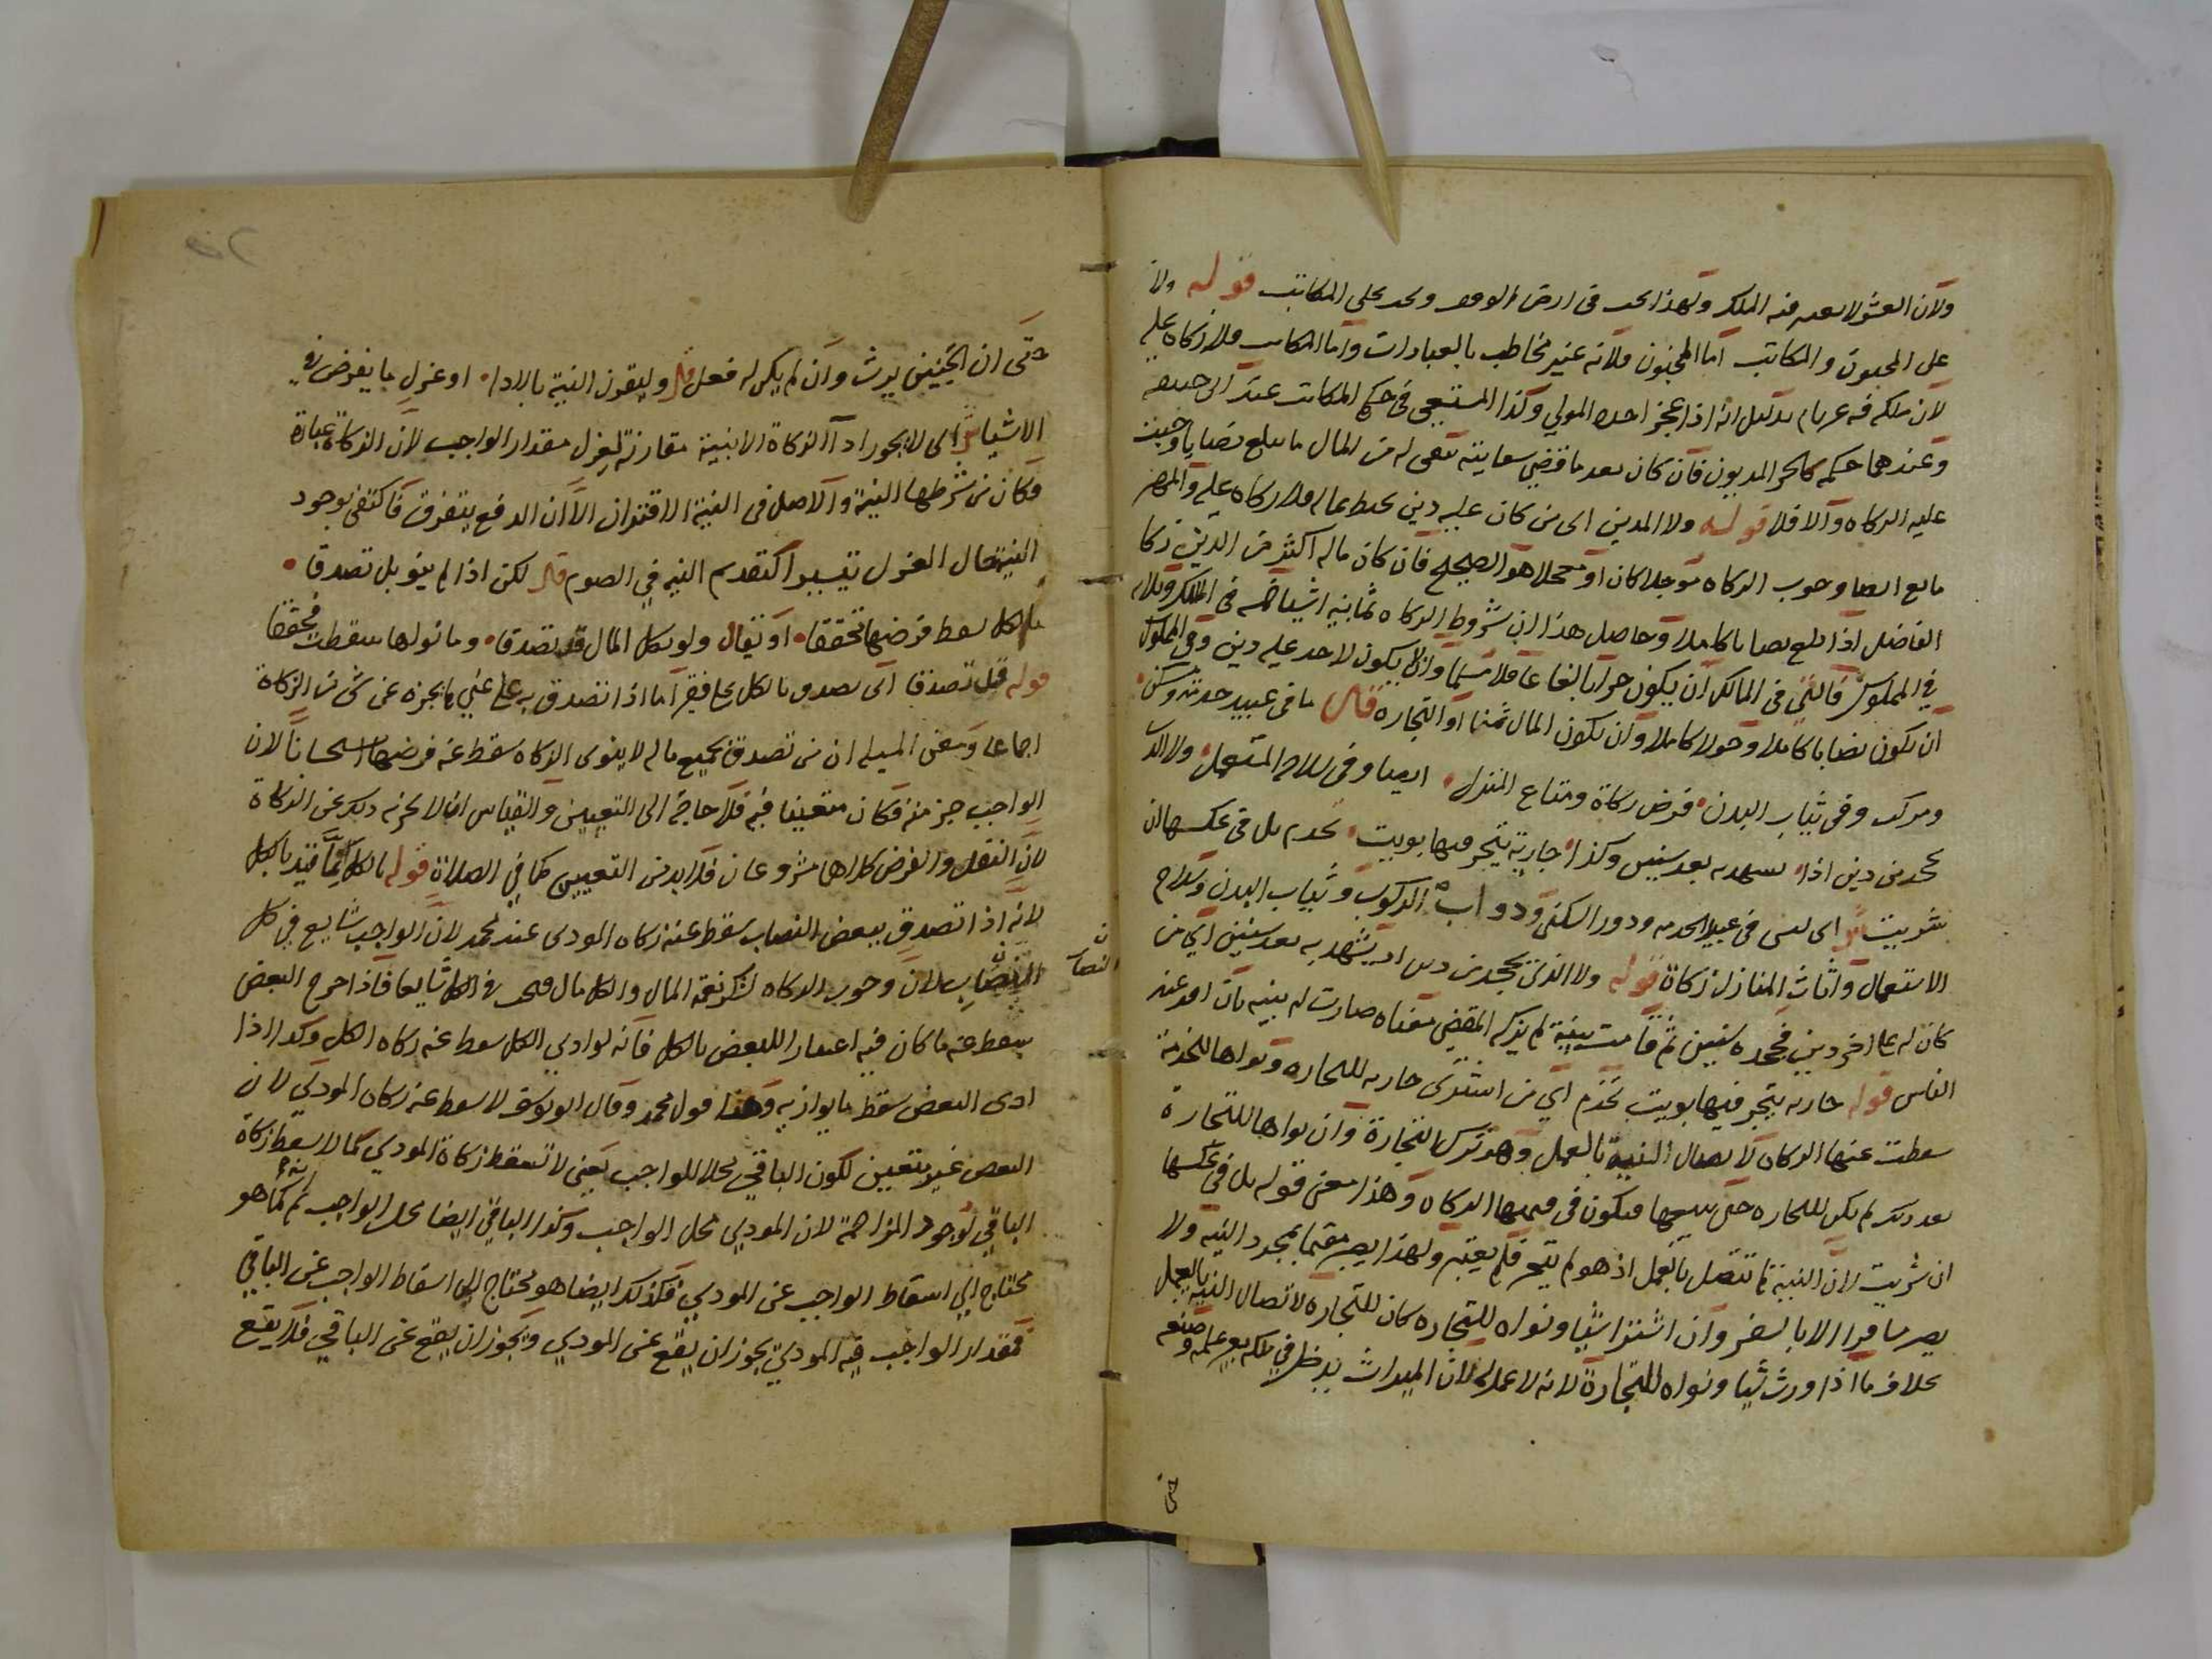 ولان العشر لا يعتبر فيه الملك ولهذا يجب في ارض الوقف ويجب على المكاتب قوله ولا
على المجنون والمكاتب اما المجنون فلانه غير مخاطب بالعبادات واما المكاتب فلا زكاة عليه
لان ملكه فيه غير تام بدليل انه اذا عجز اخذه المولي وكذا المستسعى في حكم المكاتب عند ابي حنيفة
وعندهما حكمه كالحر المديون فان كان بعد ما قضي سعايته يبقى له من المال ما يبلغ نصابا وجبت
عليه الزكاه والا فلا قوله ولا المدين اي من كان عليه دين يحيط بماله فلا زكاه عليه والمهر
مانع ايضا وجوب الزكاه مؤجلا كان او معجلا هو الصحيح فان كان ماله اكثر من الدين زكا
الفاضل اذا بلغ نصابا كاملا وحاصل هذا ان شروط الزكاه ثمانية اشيا خمسه في المالك وثلاثه
في المملوك فالتي في المالك ان يكون حرا بالغا عاقلا مسلما وان لا يكون لاحد عليه دين وفي المملوك
ان يكون نصابا كاملا وحولا كاملا وان يكون المال ثمنا او التجاره قال ما في عبيد خدمته وسكن
ومركب وفي ثياب البدن فرض زكاة ومتاع المنزل ايضا وفي سلاحه المستعمل ولا الذ
يجحد من دين اذا يشهد به بعد سنين وكذا جارية يتجر فيها نويت تخدم بل في عكسها ان
شريت ش اي ليس في عبيد الخدمه ودور السكنى ودواب الركوب وثياب البدن وسلاح
الاستعمال واثاث المنازل زكاة قوله ولا الذي يجحد من دين اذ يشهد به بعد سنين اي من
كان له على اخر دين فجحده سنين ثم قامت بينة لم يزكه لما مضي معناه صارت له بينه بان اقر عند
الناس قوله جاريه يتجر فيها نويت تخدم اي من اشترى جاريه للتجاره ونواها للخدمة
سقطت عنها الزكاه لاتصال النية بالعمل وهو ترك التجارة وان نواها للتجارة
بعد ذلك لم تكن للتجاره حتى يبيعها فيكون في ثمنها الزكاه وهذا معنى قوله بل في عكسها
ان شريت لان النية لم تتصل بالعمل اذ هو لم يتجر فلم يعتبر ولهذا يصير مقيما بمجرد النيه ولا
يصير مسافرا الا بالسفر وان اشترا شيا ونواه للتجاره كان للتجاره لاتصال النيه بالعمل
بخلاف ما اذا ورث شيا ونواه للتجارة لانه لا عمل له لان الميراث يدخل في ملكه بغير عمله وصنعه
حتى
حتى ان الجنين يرث وان لم يكن له فعل قال وليقرن النية بالادا او عزل ما يفرض في
الاشيا ش اي لا يجوز ادآ الزكاة الا بنية مقارنة لعزل مقدار الواجب لان الزكاة عبادة
فكان من شرطها النية والاصل في النية الاقتران الا ان الدفع يتفرق فاكتفى بوجود
النيه حال العزل تيسيرا كتقديم النيه في الصوم قال لكن اذا لم ينو بل تصدقا
بالكل يسقط فرضها تحققا او يقال ولو بكل المال قد تصدقا وما نواها سقطت محققا
قوله قبل تصدقا اي تصدق بالكل على فقير اما اذا تصدق به على غني لم يجزه عن شي من الزكاة
اجماعا ومعنى المسئلة ان من تصدق بجميع ماله لا ينوى الزكاه سقط عنه فرضها استحسانا لان
الواجب جز منه فكان متعينا فيه فلا حاجة الى التعيين والقياس ان لا يجزئه ذلك عن الزكاة
لان النفل والفرض كلاهما مشروعان فلا بد من التعيين كما في الصلاة قوله بالكل انما قيد بالكل
لانه اذا تصدق ببعض النصاب سقط عنه زكاه المودى عند محمد لان الواجب شايع في كل
النصاب لان وجوب الزكاه لشكر نعمة المال والكل مال فيجب في الكل شايعا فاذا اخرج البعض
ن النصاب
يسقط عنه ما كان فيه اعتبارا للبعض بالكل فانه لو ادي الكل سقط عنه زكاه الكل وكذا اذا
ادى البعض سقط ما يوازيه وهذا قول محمد وقال ابو يوسف لا يسقط عنه زكاه المودى لان
البعض غير متعين لكون الباقي محلا للواجب يعني لا تسقط زكاة المودي كما لا يسقط زكاة
الباقي لوجود المزاحمة لان المودي محل الواجب وكذا الباقي ايضا محل الواجب ثم كما هو
محتاج الى اسقاط الواجب عن المودي فكذلك ايضا هو محتاج الى اسقاط الواجب عن الباقي
فمقدار الواجب في المودى يجوز ان يقع عن المودي ويجوز ان يقع عن الباقي فلا يقع